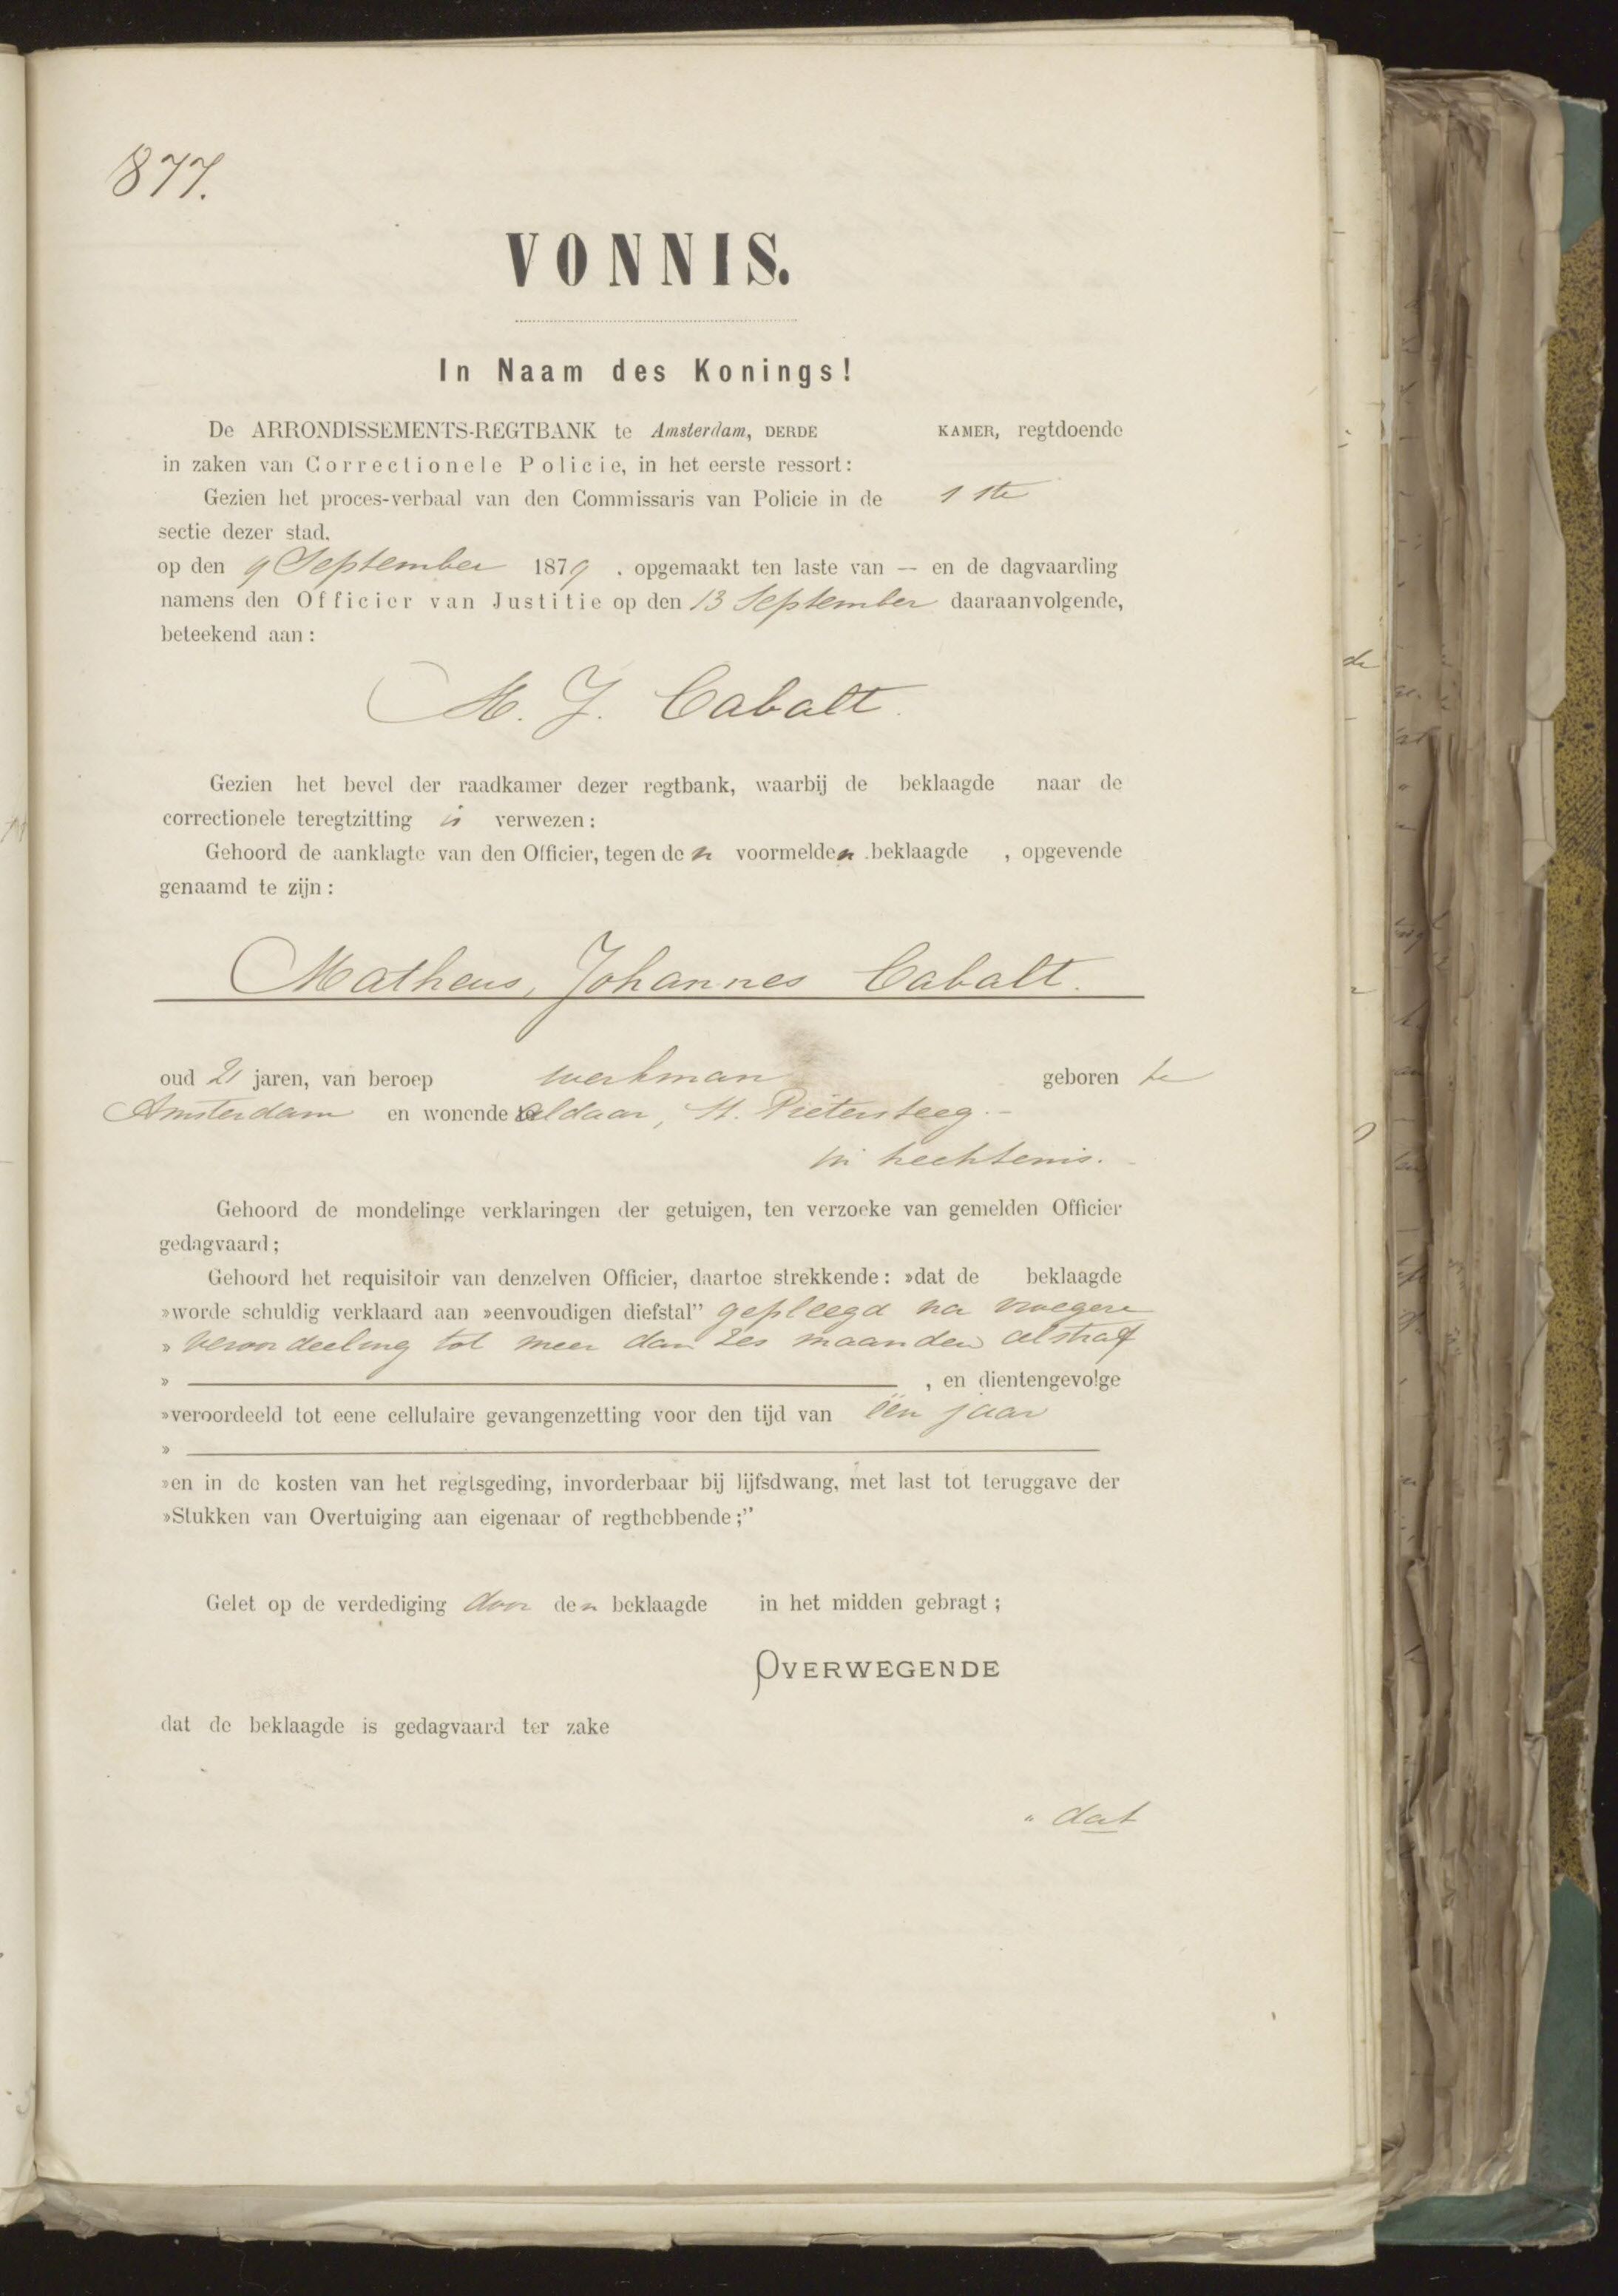 877.
VONNIS.
In Naam des Konings!
De ARRONDISSEMENTS-REGTBANK te Amsterdam, DERDE KAMER, regtdoende
in zaken van Correctionele Policie, in het eerste ressort:
Gezien het proces-verbaal van den Commissaris van Policie in de 1ste
sectie dezer stad,
op den 9 September 1879, opgemaakt ten laste van — en de dagvaarding
namens den Officier van Justitie op den 13 September daaraanvolgende,
beteekend aan:
M. J. Cabalt.
Gezien het bevel der raadkamer dezer regtbank, waarbij de beklaagde naar de
correctionele teregtzitting is verwezen:
Gehoord de aanklagte van den Officier, tegen den voormelden beklaagde, opgevende
genaamd te zijn:
Matheus, Johannes Cabalt.
oud 21 jaren, van beroep werkman geboren te
Amsterdam en wonende aldaar, St. Pietersteeg.-
in hechtenis.
Gehoord de mondelinge verklaringen der getuigen, ten verzoeke van gemelden Officier
gedagvaard;
Gehoord het requisitoir van denzelven Officier, daartoe strekkende: »dat de beklaagde
»worde schuldig verklaard aan »eenvoudigen diefstal" gepleegd na vroegere
» veroordeeling tot meer dan zes maanden celstraf
» , en dientengevolge
»veroordeeld tot eene cellulaire gevangenzetting voor den tijd van één jaar
»
»en in de kosten van het regtsgeding, invorderbaar bij lijfsdwang, met last tot teruggave der
»Stukken van Overtuiging aan eigenaar of regthebbende;"
Gelet op de verdediging door den beklaagde in het midden gebragt;
OVERWEGENDE
dat de beklaagde is gedagvaard ter zake
" dat